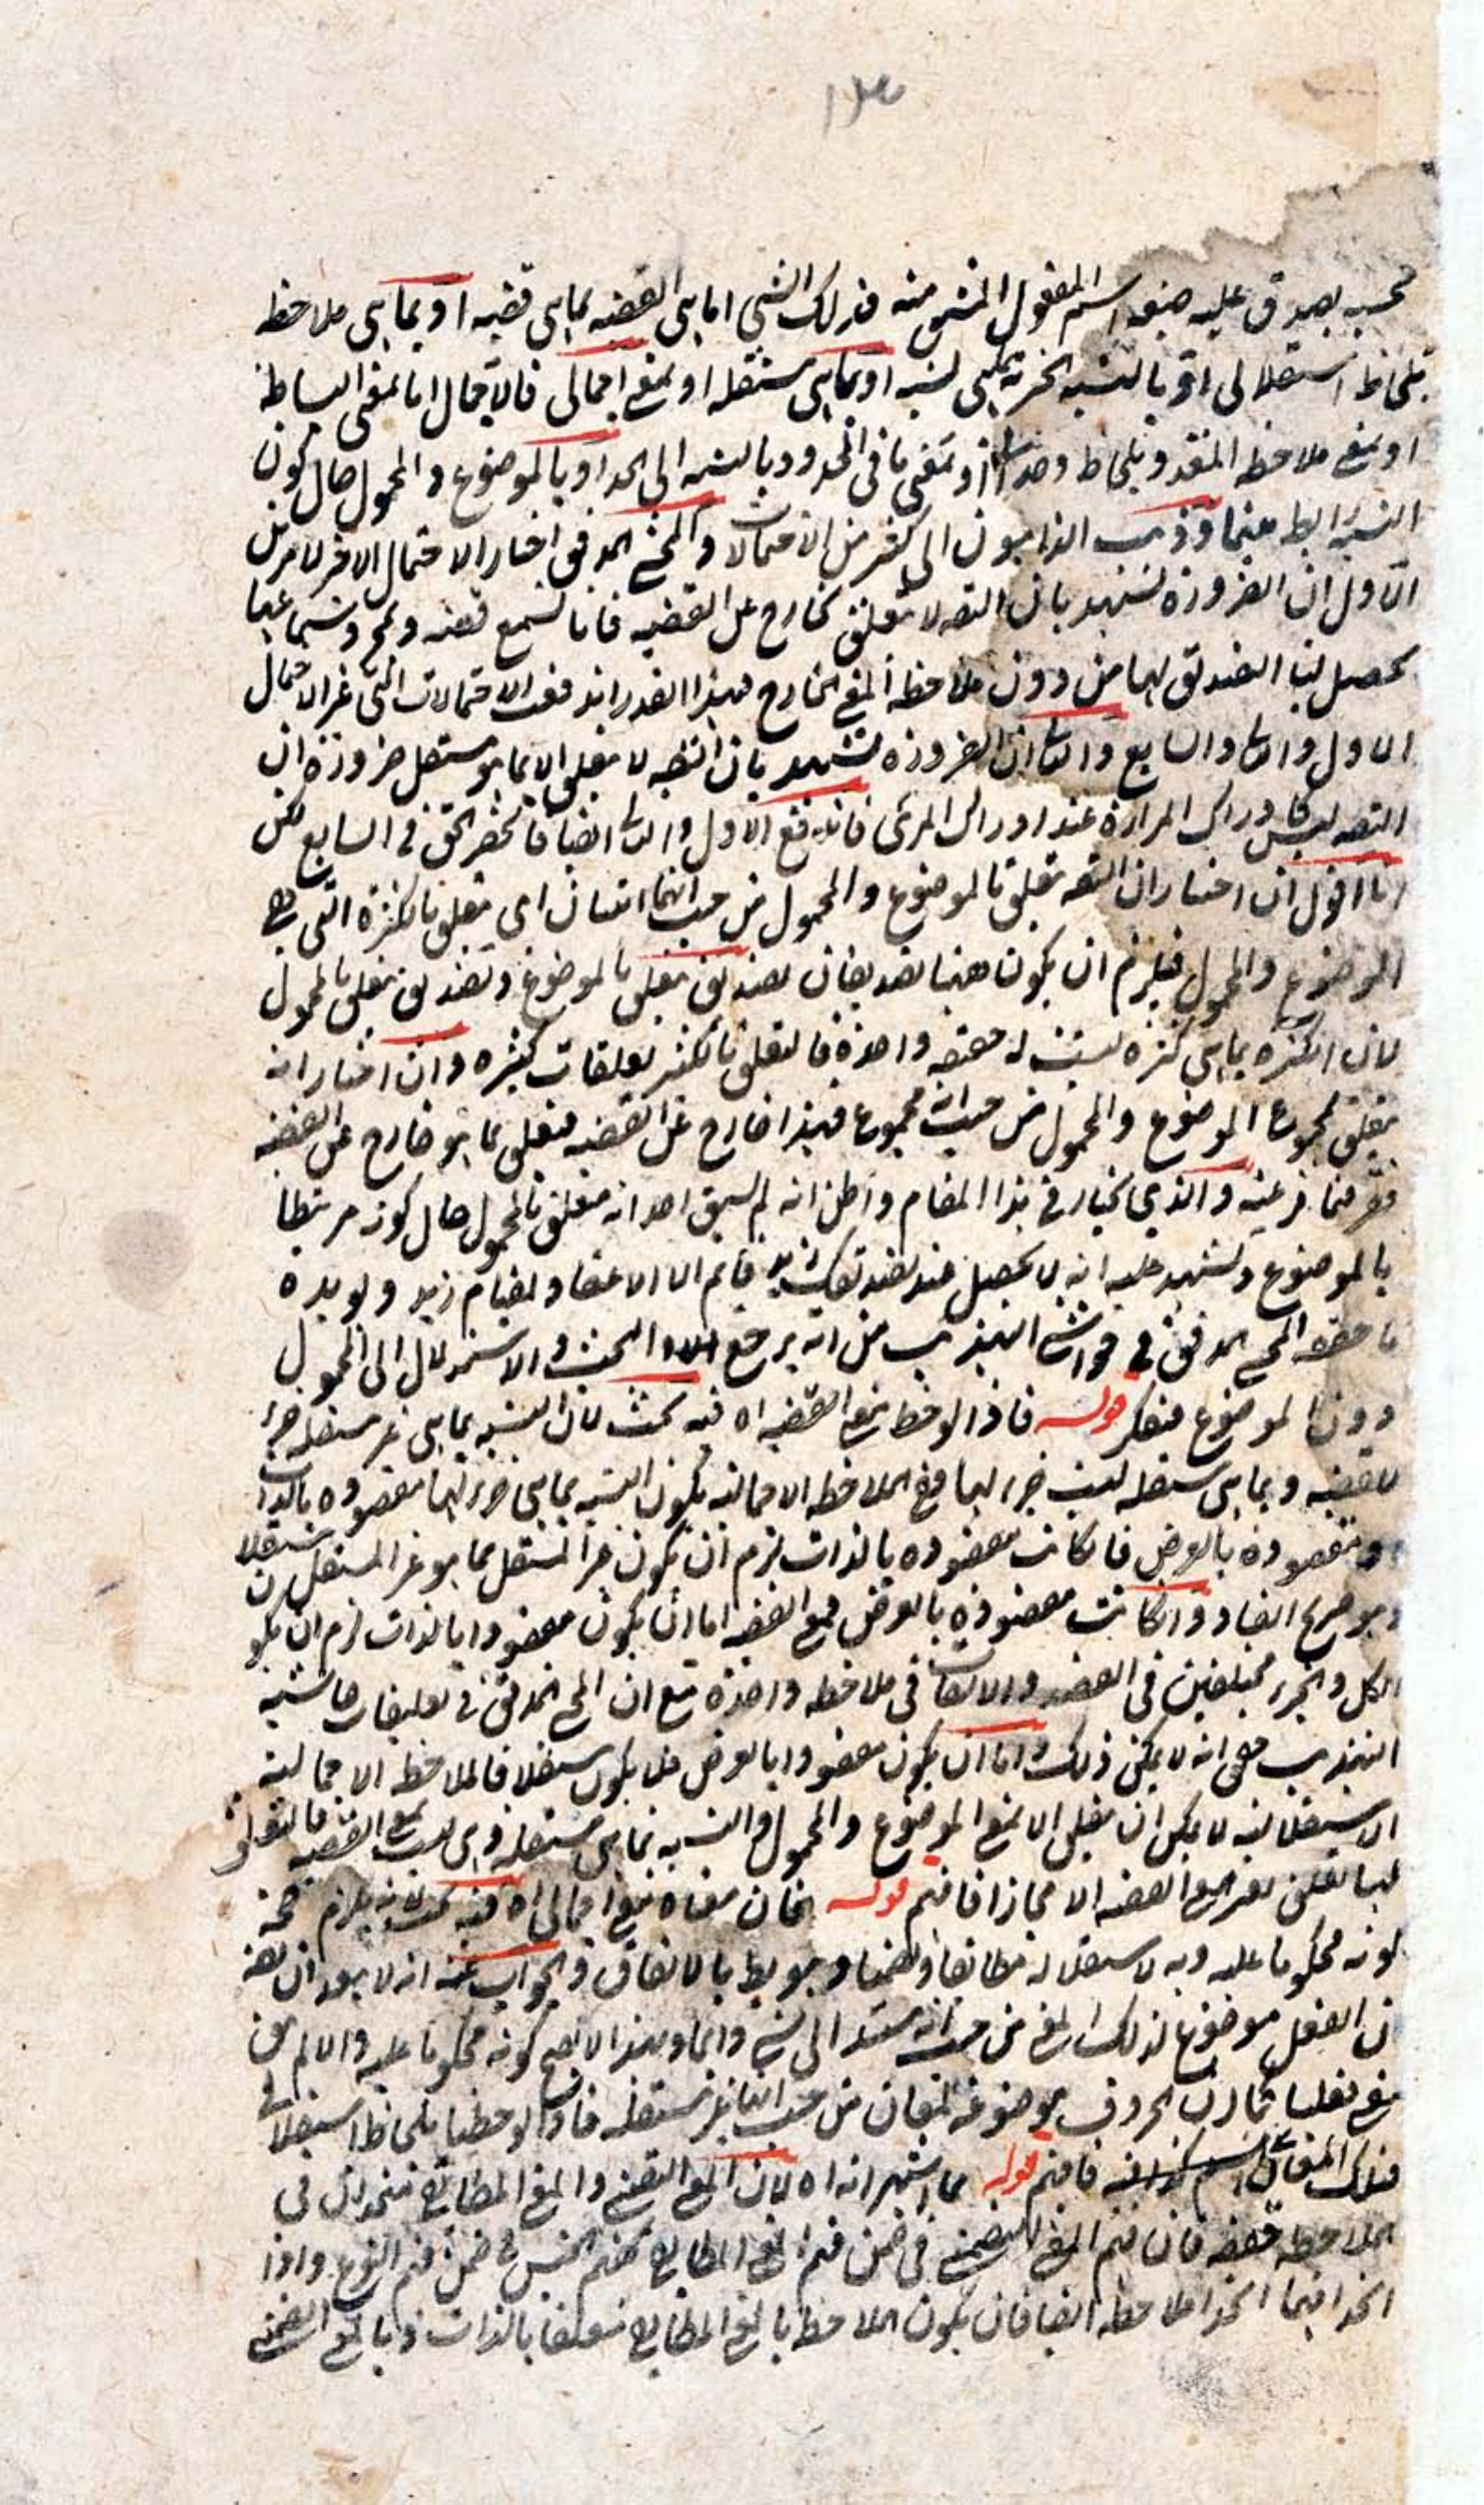 بحسبه يصدق عليه صيغة اسم المفعول المشتق منه فذلك الشي اما هى القضيه بما هى قضيه او بما هى ملاحظه
بلحاظ استقلالى او بالنسبه الخبريه بما هى نسبه او بما هى مستقله او بمعنى اجمالى فالاجمال اما بمعنى البساطه
او بمعنى ملاحظه المتعدد بلحاظ وحدانى او بمعنى ما فى المحدود بالنسبه الى الحد او بالموضوع و المحمول حال كون
النسبه رابطه بينهما و ذهب الذاهبون الى كثير من الاحتمالات و المحقق المدقق اختار الاحتمال الاخر لامرين
الاول ان الضرورة تشهد بان التصه لا يتعلق بخارج عن القضيه فانا نسمع قضيه و بمجرد سماعها
يحصل لنا التصديق بها من دون ملاحظه المعنى الخارج فبهذا القدر اندفعت الاحتمالات التى غير الاحتمال
الاول والثانى والسابع والثانى ان الضرورة تشهد بان التصه لا يتعلق الا بما هو مستقل ضرورة ان
التصه ليس كادراك المراة عند ادراك المرئى فاندفع الاول والثانى ايضا فانحصر الحق فى السابع لكن
انا اقول ان اختار ان التصه تعلق بالموضوع والمحمول من حيث انهما اثنان اى تعلق بالكثرة التى هى
الموضوع والمحمول فيلزم ان يكون ههنا تصديقان تصديق متعلق بالموضوع وتصديق متعلق بالمحمول
لان الكثره بما هى كثره ليست له حقيقه واحدة فالتعلق بالكثير تعلقات كثيره وان اختار انه
يتعلق بمجموع الموضوع والمحمول من حيث انه مجموع فهذا خارج عن القضيه فتعلق بما هو خارج عن القضيه
فقر عما فر عنه والذى يختار فى هذا المقام واظن انه لم يسبق احد انه متعلق بالمحمول حال كونه مرتبطا
بالموضوع وتشهد عليه انه لا يحصل عند تصديقك زيد قايم الا الاعتقاد لقيام زيد و يويده
ما حققه المحقق المدقق فى حواشى التهذيب من انه يرجع البحث والاستدلال الى المحمول
دون الموضوع فتفكر قوله فاذا لوحظ بمعنى القضيه اه فيه بحث لان النسبه بما هى غير مستقله جزء
للقضيه و بما هى مستقله ليست جزء لها فمع الملاحظه الاجماليه تكون النسبه بما هى جزء لها مقصوده بالذات
و مقصوده بالعرض فان كانت مقصوده بالذات لزم ان يكون غير المستقل بما هو غير المستقل مستقلا
وهو صريح الفساد و ان كانت مقصودة بالعرض فمع القضيه اما ان يكون مقصودا بالذات لزم ان يكون
الكل والجزء مختلفين فى القصد والالتفات فى ملاحظه واحدة مع ان المحقق المدقق فى تعليقات حاشيه
التهذيب حقق انه لا يمكن ذلك و اما ان يكون مقصودا بالعرض فلا يكون مستقلا فالملاحظه الاجماليه
الاستقلاليه لا يمكن ان يتعلق الا بمعنى الموضوع والمحمول والنسبه بما هى مستقله وهى ليست بمعنى القضيه فالتعلق
بها تعلق بغير معنى القضيه الا مجازا فافهم قوله فان معناه معنى اجمالى اه فيه بحث لانه يلزم صحة
كونه محكوما عليه وبه لاستقلاله مطابقا و تضمنا و هو بط بالاتفاق والجواب عنه انه لا يبعد ان يقه
ان الفعل موضوع لذلك المعنى من حيث انه مسند الى شى دائما و بهذا لا يصح كونه محكوما عليه والا لم يبق
معنى فعليا كما ان الحروف موضوعة لمعان من حيث انها غير مستقله فاذا لوحظها بلحاظ استقلالى
فتلك المعانى اسميه فافهم قوله مما اشتهر انه اه لان المعنى التضمنى والمعنى المطابقى متحدان فى
الملاحظه حقيقه فان فهم المعنى التضمنى فى ضمن فهم المعنى المطابقى كفهم الجنس فى ضمن فهم النوع واذا
اتحدا فهما اتحدا ملاحظه ايضا فان يكون الملاحظه بالمعنى المطابقى متعلقا بالذات و بالمعنى التضمنى